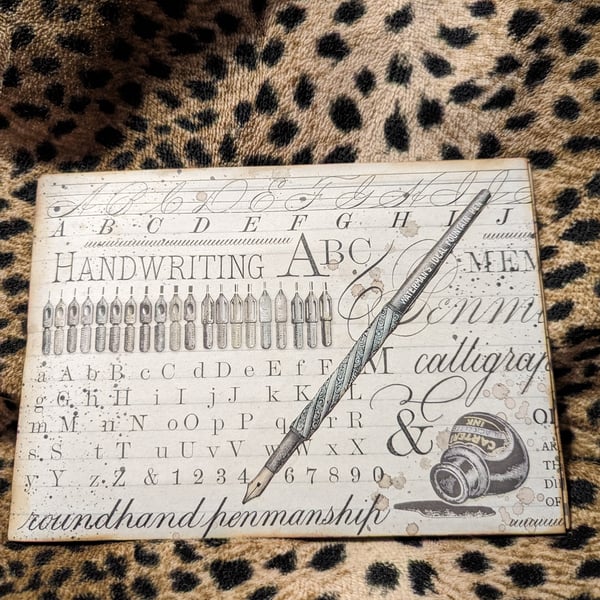 A B C D E F G H I J
A B C D E F G H I J
HANDWRITING ABC MEM
WATERMAN'S IDEAL FOUNTAIN PEN
Penm
a A b B c C d D e E f F M calligrap
g G h H i I j J k K L
m M n N o O p P q r R &
s S t T u U v V w W x X
y Y z Z & 1 2 3 4 6 7 8 9 0
CARTER
INK
OF
roundhand penmanship